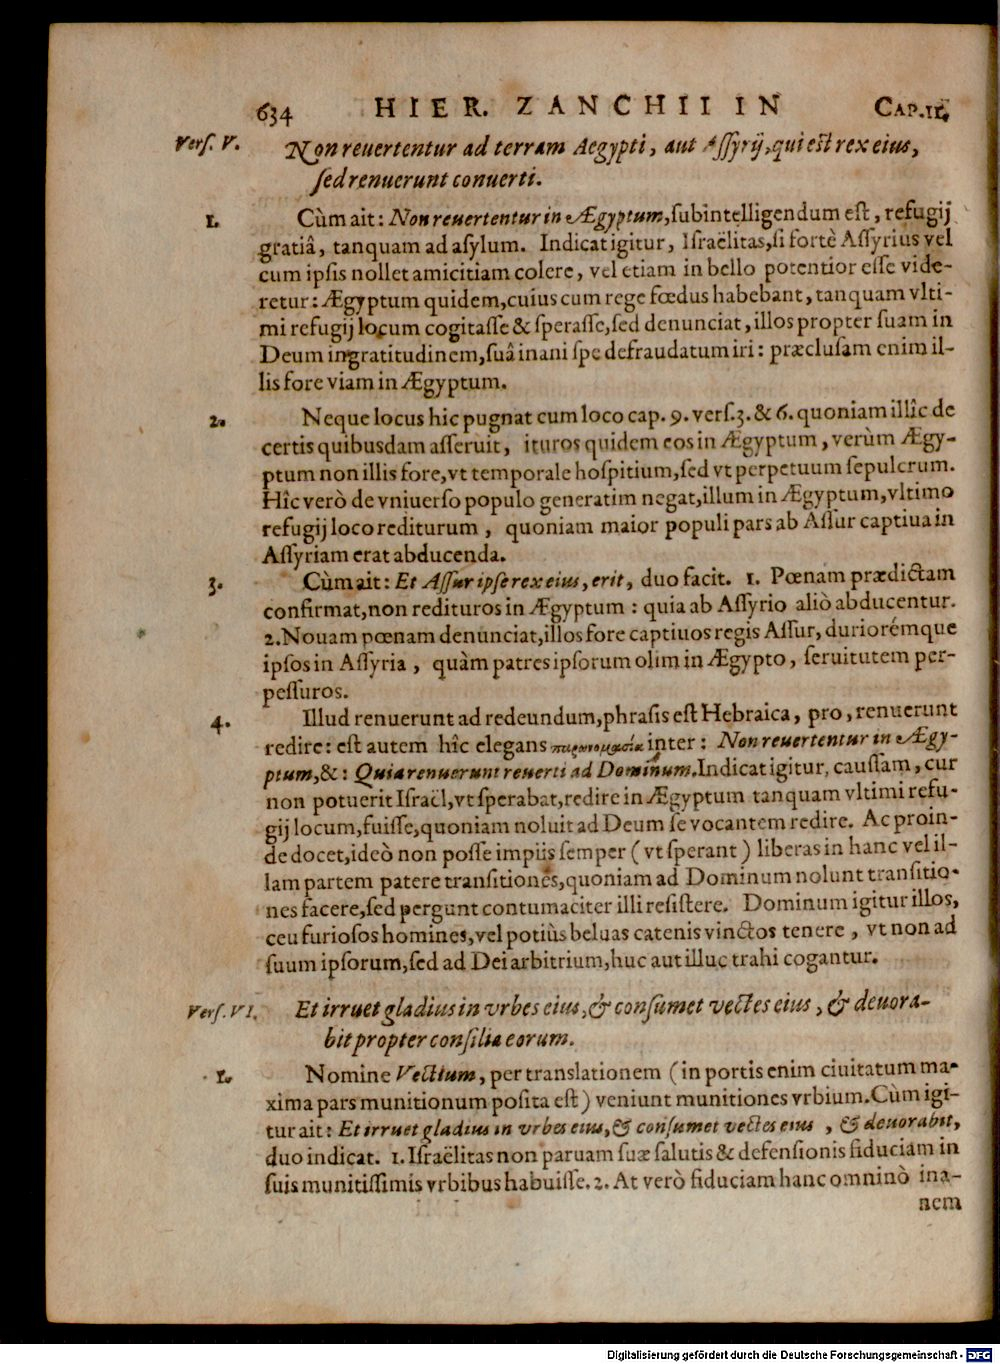 634 HIER. ZANCHII IN CAP. II.
Verſ. V. Non reuertentur ad terram Aegypti, aut Aſſyrij, qui est rex eius,
ſed renuerunt conuerti.
1. Cùm ait: Non reuertentur in Ægyptum, ſubintelligendum eſt, refugij
gratiâ, tanquam ad aſylum. Indicat igitur, Iſraëlitas, ſi fortè Aſſyrius vel
cum ipſis nollet amicitiam colere, vel etiam in bello potentior eſſe vide-
retur: Ægyptum quidem, cuius cum rege fœdus habebant, tanquam vlti-
mi refugij locum cogitaſſe & ſperaſſe, ſed denunciat, illos propter ſuam in
Deum ingratitudinem, ſuâ inani ſpe defraudatum iri: præcluſam enim il-
lis fore viam in Ægyptum.
2. Neque locus hic pugnat cum loco cap. 9. verſ. 3. & 6. quoniam illîc de
certis quibusdam aſſeruit, ituros quidem eos in Ægyptum, verùm Ægy-
ptum non illis fore, vt temporale hoſpitium, ſed vt perpetuum ſepulcrum.
Hîc verò de vniuerſo populo generatim negat, illum in Ægyptum, vltimo
refugij loco rediturum, quoniam maior populi pars ab Aſſur captiua in
Aſſyriam erat abducenda.
3. Cùm ait: Et Aſſur ipſe rex eius, erit, duo facit. 1. Pœnam prædictam
confirmat, non redituros in Ægyptum: quia ab Aſſyrio aliò abducentur.
2. Nouam pœnam denunciat, illos fore captiuos regis Aſſur, duriorémque
ipſos in Aſſyria, quàm patres ipſorum olim in Ægypto, ſeruitutem per-
peſſuros.
4. Illud renuerunt ad redeundum, phraſis eſt Hebraica, pro, renuerunt
redire: eſt autem hîc elegans παρονομασία inter: Non reuertentur in Ægy-
ptum, &: Quia renuerunt reuerti ad Dominum. Indicat igitur, cauſſam, cur
non potuerit Iſraël, vt ſperabat, redire in Ægyptum tanquam vltimi refu-
gij locum, fuiſſe, quoniam noluit ad Deum ſe vocantem redire. Ac proin-
de docet, ideò non poſſe impiis ſemper (vt ſperant) liberas in hanc vel il-
lam partem patere tranſitiones, quoniam ad Dominum nolunt tranſitio-
nes facere, ſed pergunt contumaciter illi reſiſtere. Dominum igitur illos,
ceu furioſos homines, vel potiùs beluas catenis vinctos tenere, vt non ad
ſuum ipſorum, ſed ad Dei arbitrium, huc aut illuc trahi cogantur.
Verſ. VI. Et irruet gladius in vrbes eius, & conſumet vectes eius, & deuora-
bit propter conſilia eorum.
1. Nomine Vectium, per translationem (in portis enim ciuitatum ma-
xima pars munitionum poſita eſt) veniunt munitiones vrbium. Cùm igi-
tur ait: Et irruet gladius in vrbes eius, & conſumet vectes eius, & deuorabit,
duo indicat. 1. Iſraëlitas non paruam ſuæ ſalutis & defenſionis fiduciam in
ſuis munitiſſimis vrbibus habuiſſe. 2. At verò fiduciam hanc omninò ina-
nem
Digitalisierung gefördert durch die Deutsche Forschungsgemeinschaft - DFG